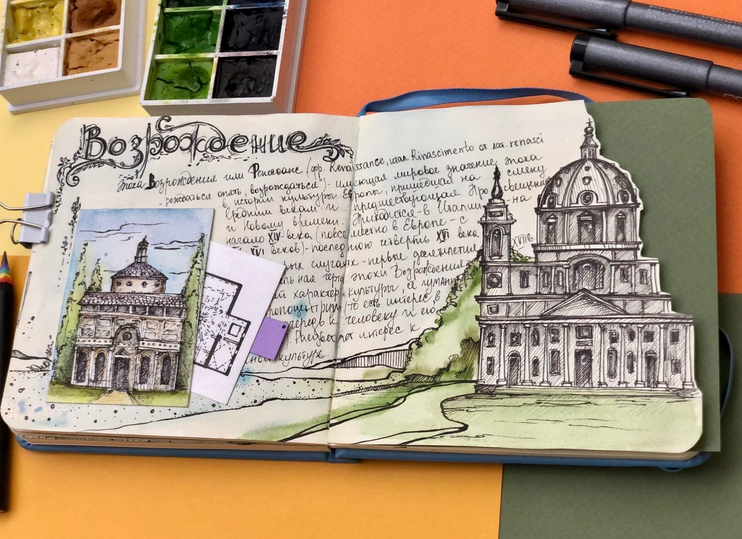 Возрождение
Эпоха Возрождения или Ренессанс (фр. Renaissance, итал. Rinascimento от лат. renasci
- рождаться опять, возрождаться) - имеющая мировое значение эпоха
в истории культуры Европы, пришедшая на смену
Средним векам и предшествующая Просвещению
и Новому времени. Приходится - в Италии - на
начало XIV века (повсеместно в Европе - с
XVI веков) - последнюю четверть XVI века
случаях - первые десятилетия XVII в.
черта эпохи Возрождения
характер культуры, её гуманизм
то есть интерес в
к человеку и его
интерес к
культуре